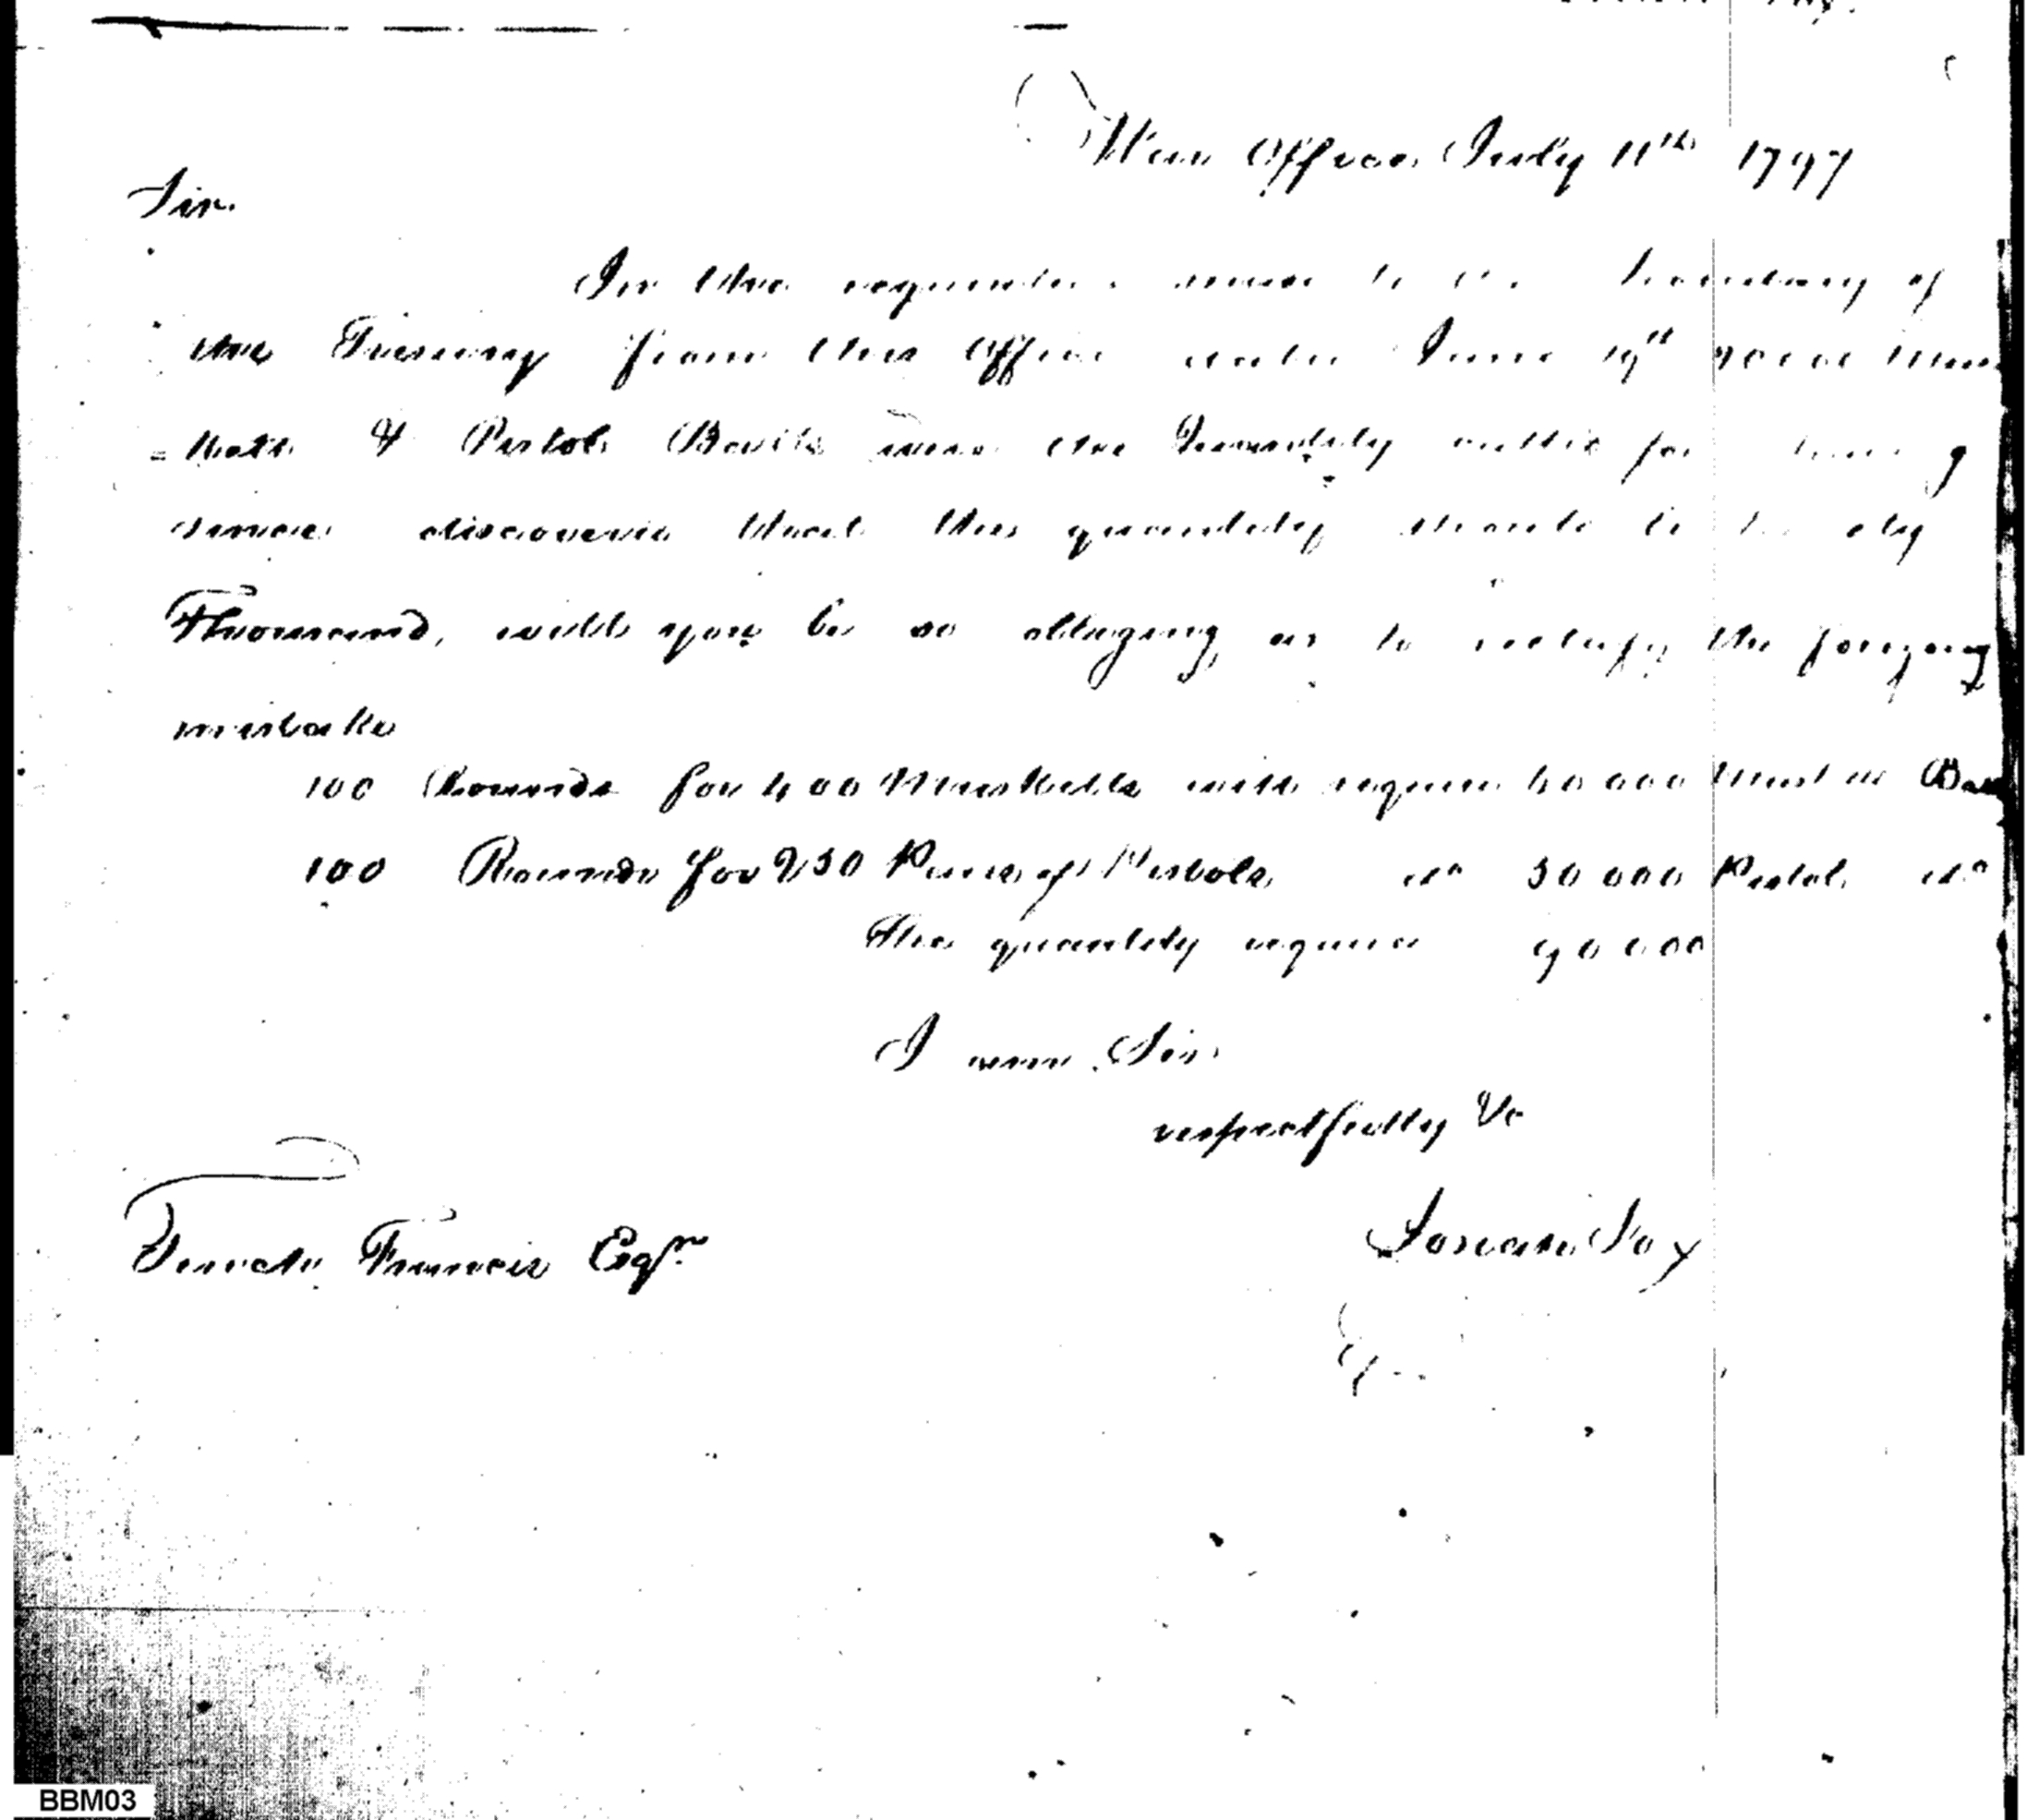 War Office July 11th 1797
Sir.
In the requisition made to the Secretary of
the Treasury from this Office dated June 19th 90000 Mus
=kett & Pistol Balls was the Quantity called for
since discovered that this quantity should be
Thousand, will you be so obliging as to rectify the foregoing
mistake
100 Rounds for 400 Musketts will require 40 000 Musket
100 Rounds for 250 Pairs of Pistols do 50 000 Pistol do
The quantity required 90 000
I am Sir
respectfully &c
Tench Francis Esqr.
Josiah Fox
BBM03